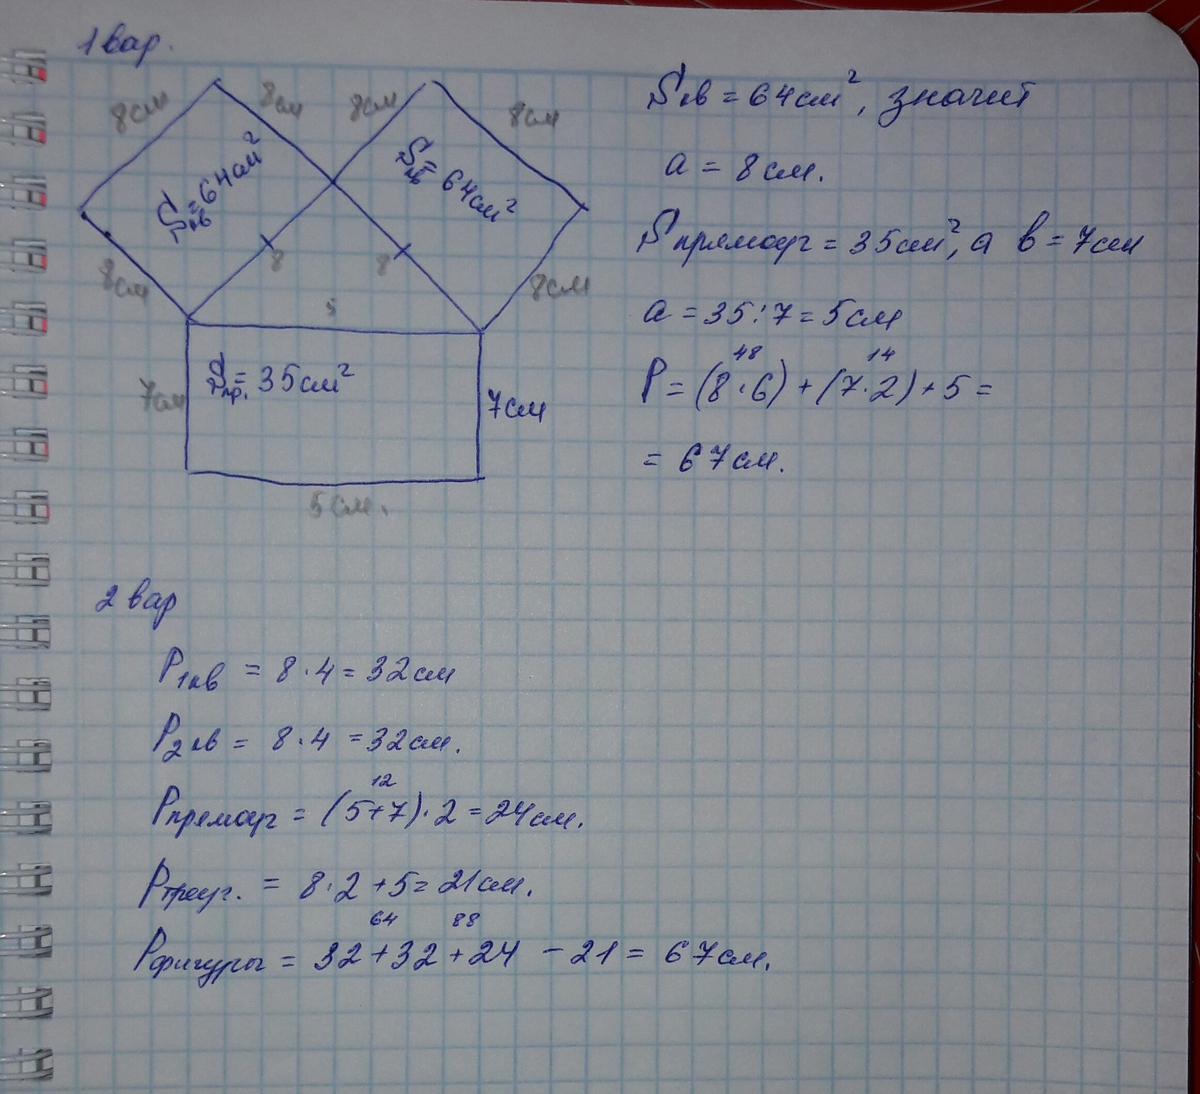 1 вар.
8см 8см 8см 8см
Sкв = 64см²
Sкв = 64см²
8см 8 8 8см
5
7см Sпр. = 35см² 7см
5см.
Sкв = 64см², значит
a = 8см.
Sпрямоуг = 35см², а в = 7см
a = 35:7 = 5см
48 14
P = (8·6) + (7·2) + 5 =
= 67см.
2 вар
P1кв = 8·4 = 32см
P2кв = 8·4 = 32см.
12
Pпрямоуг = (5+7)·2 = 24см.
Pтреуг. = 8·2 + 5 = 21см.
64 88
Pфигуры = 32 + 32 + 24 - 21 = 67см.